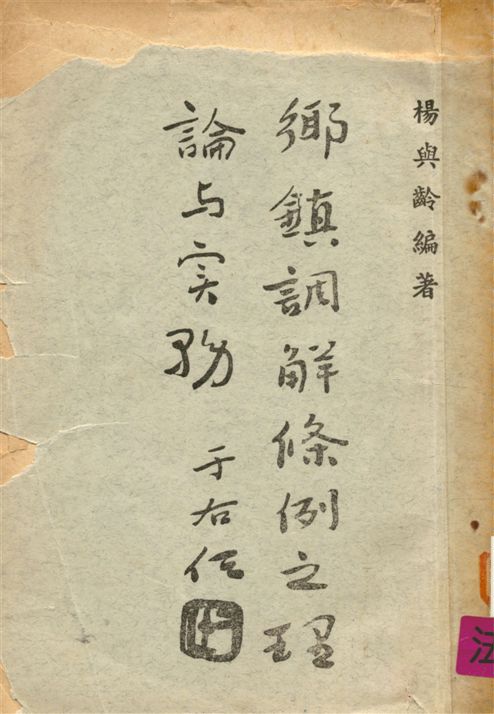 楊與齡編著
鄉鎮調解條例之理
論与实务
于右任
法